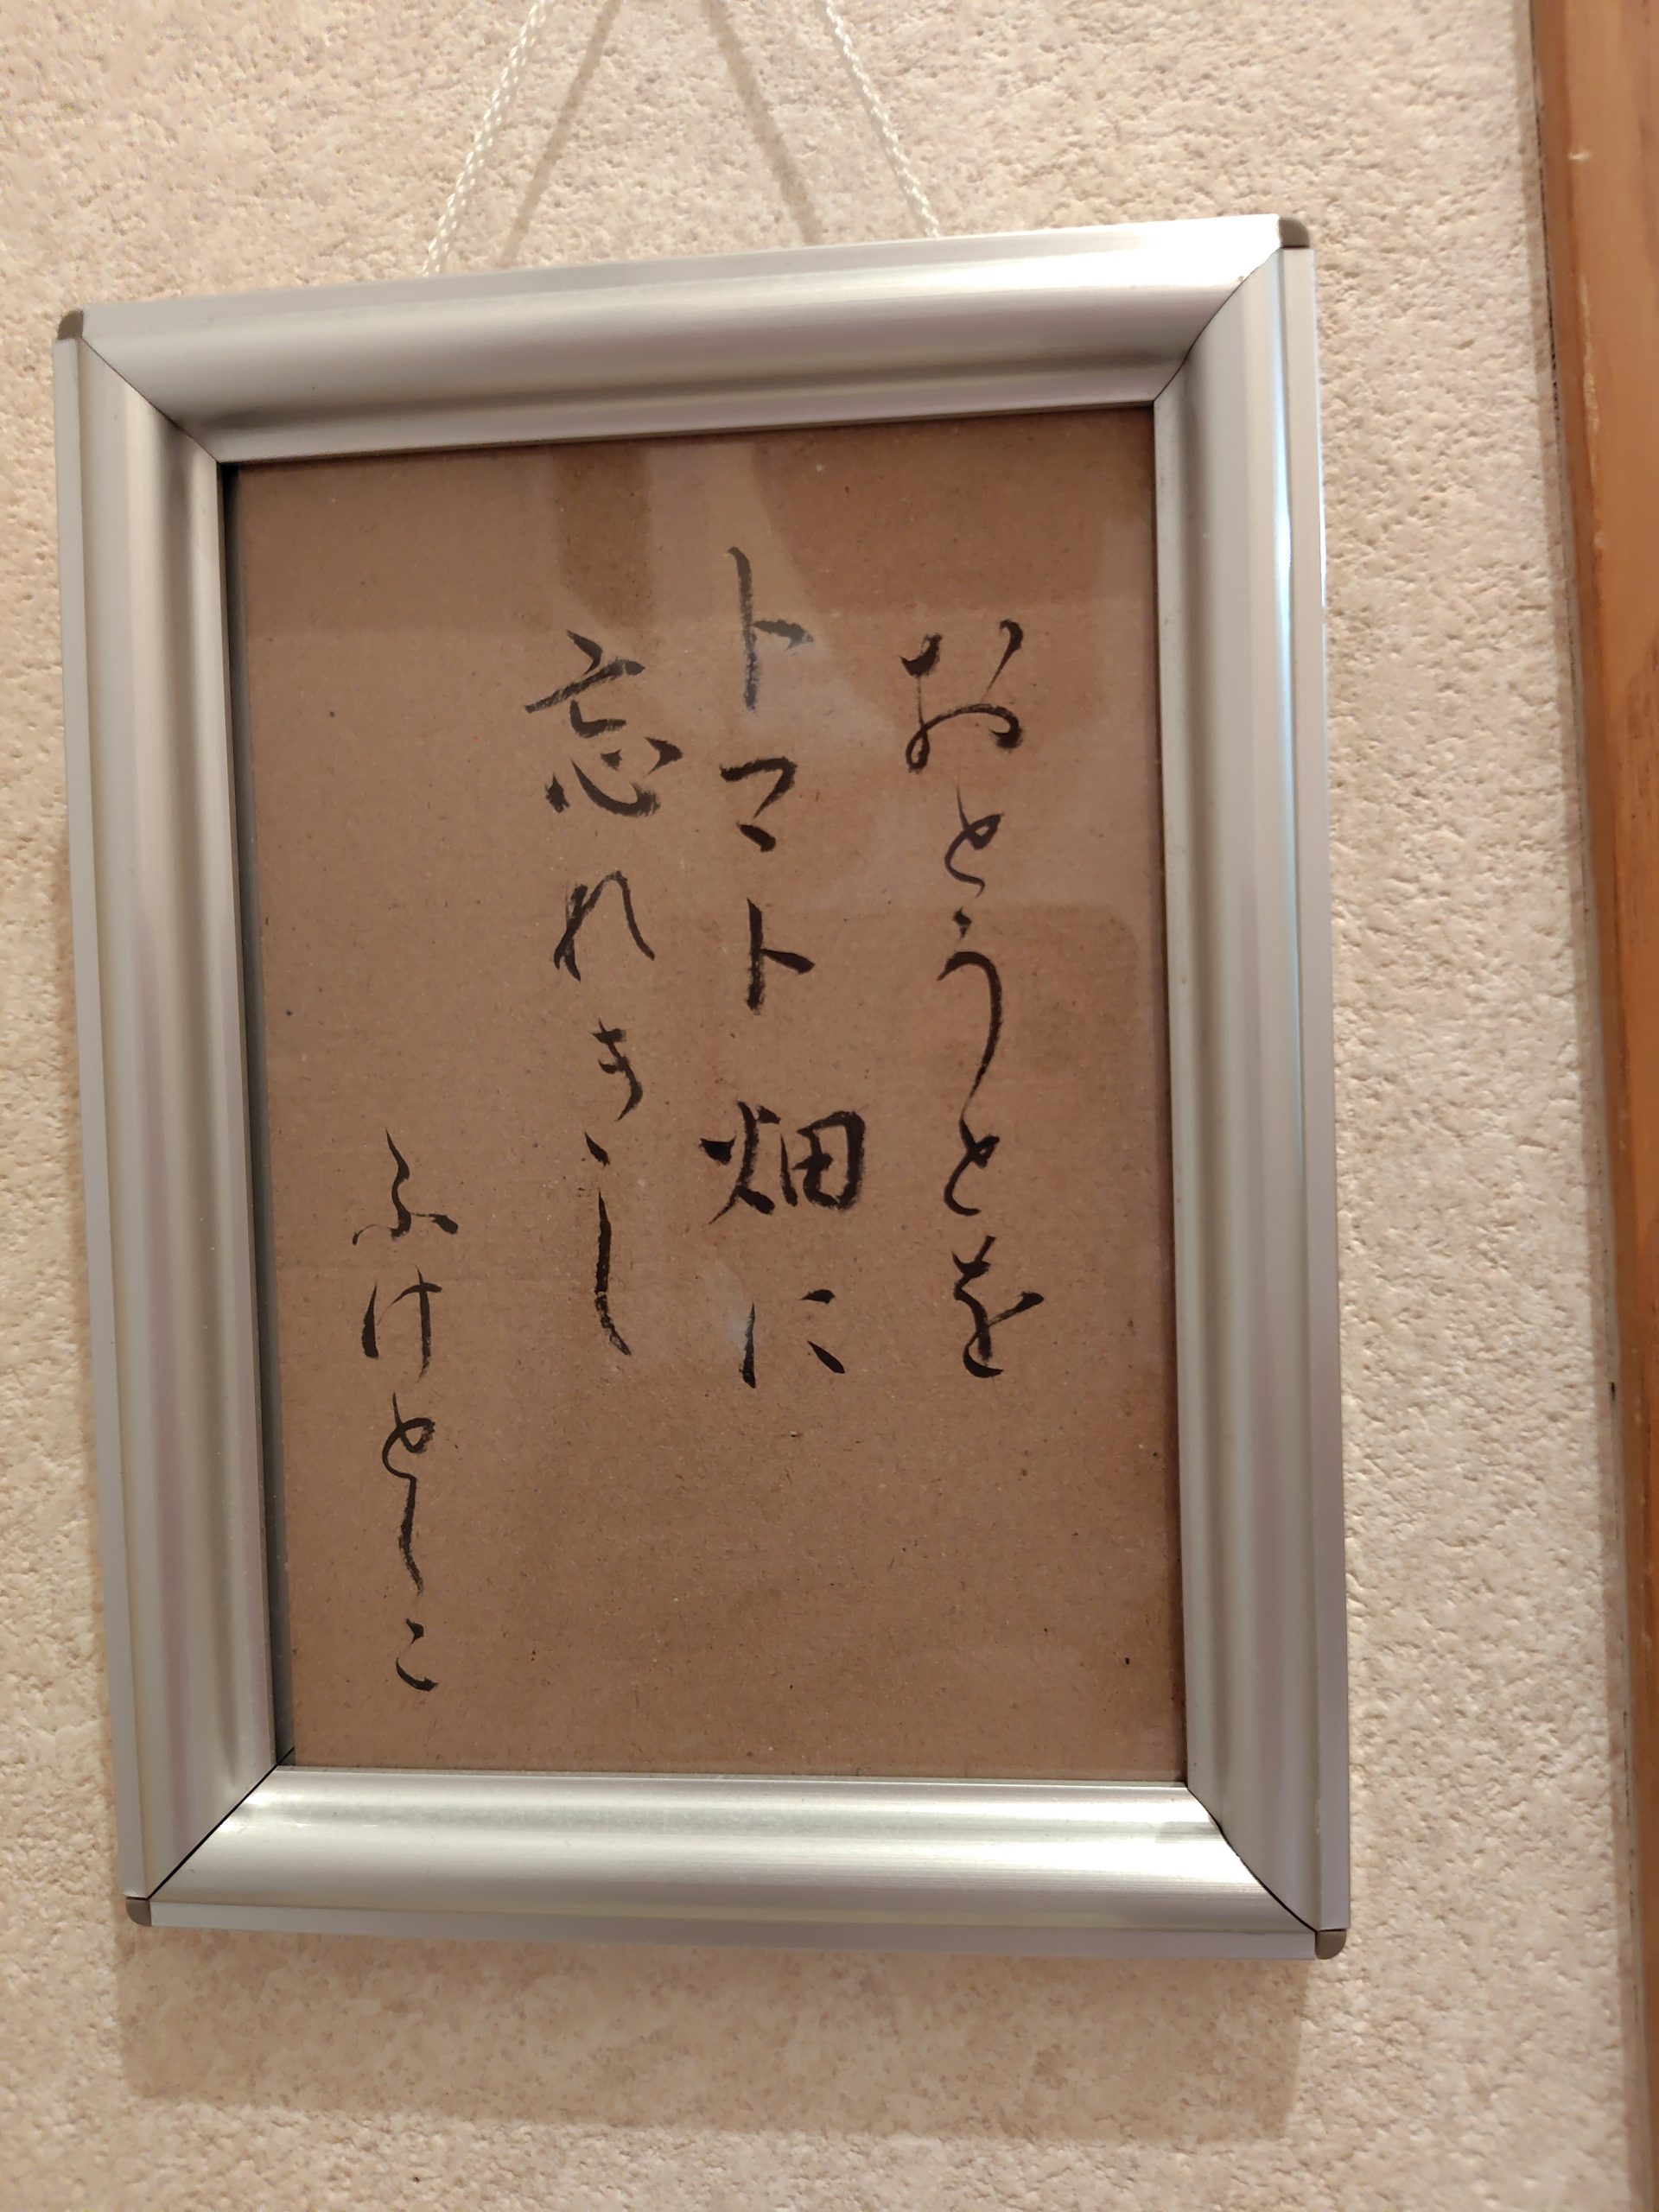 おとうとを
トマト畑に
忘れきし
ふけとしこ